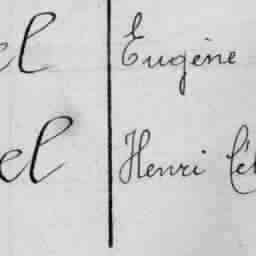 el Eugène
el Henri Cél